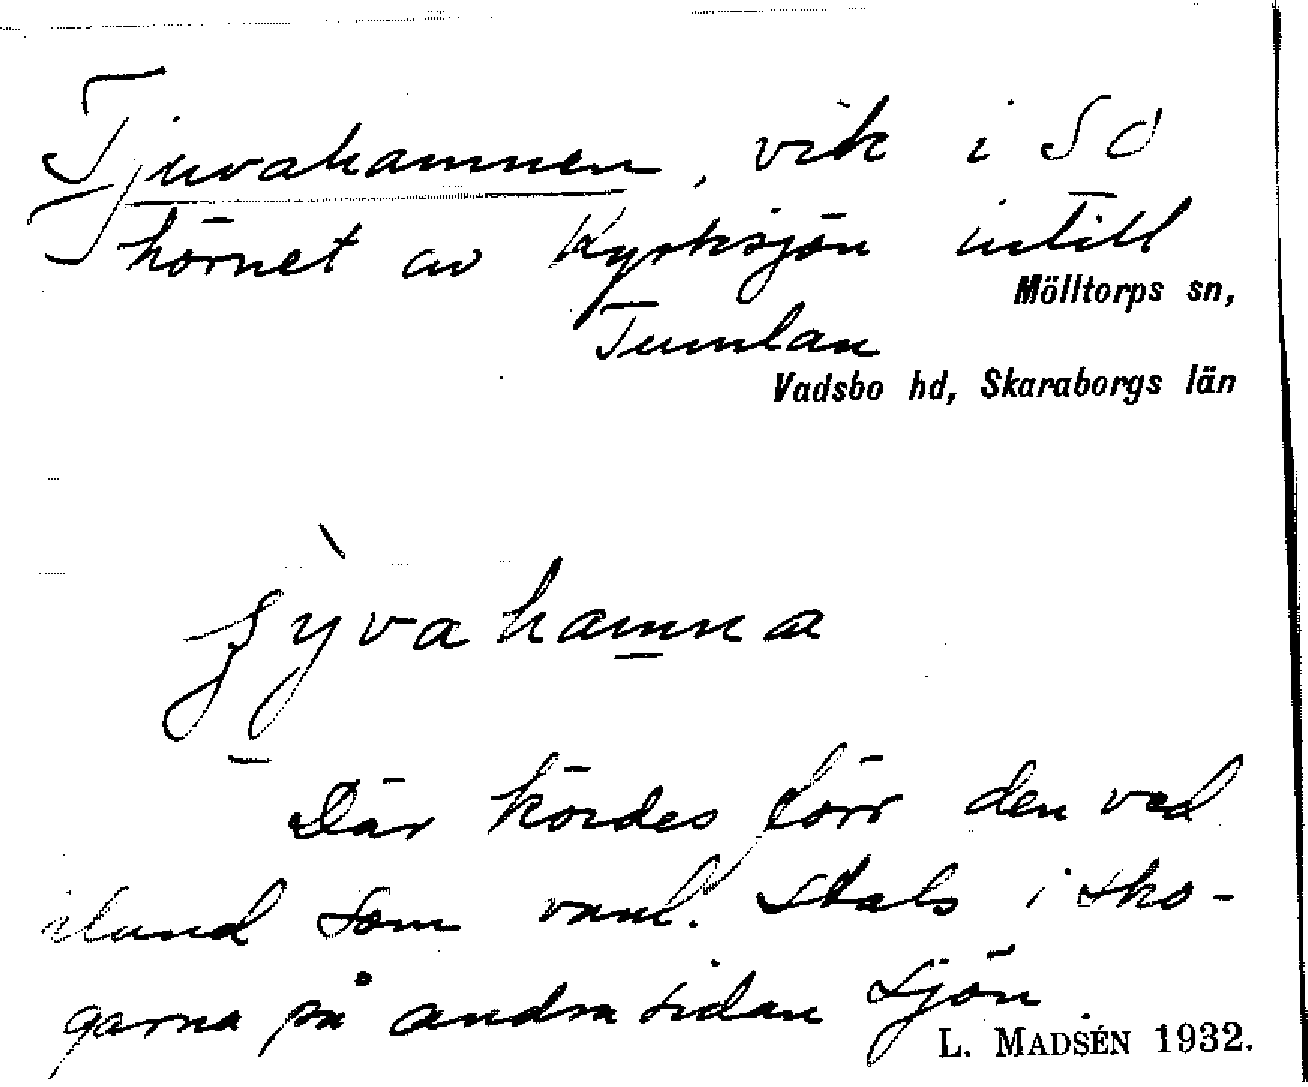 Tjuvahamnen, vik i SÖ
hörnet av Kyrksjön intill
Mölltorps sn,
Tumlan
Vadsbo hd, Skaraborgs län
Där kördes förr den ved
iland som vanl. stals i sko-
garna på andra sidan sjön
L. MADSÉN 1932.